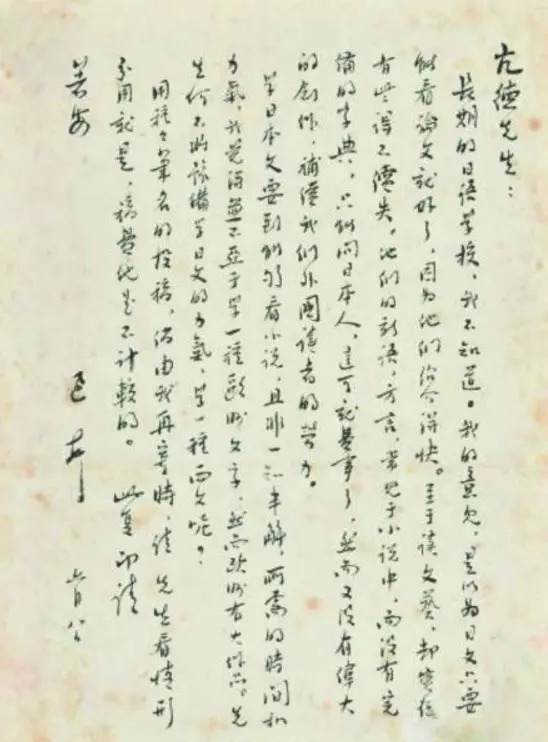 亢德先生：
長期的日語學校，我不知道。我的意見，是以為日文只要
能看論文就好了，因为他們紹介得快。至于讀文藝，却實在
有些得不償失。他們的新語，方言，常見于小説中，而没有完
備的字典，只能問日本人，這可就費事了，然而又没有偉大
的創作，補償我們外國讀者的勞力。
學日本文要到能夠看小説，且非一知半解，所需的時間和
力氣，我覺得並不亞于學一種歐洲文字，然而歐洲有大作品。先
生何不將豫備學日文的力氣，學一種西文呢？
用種種筆名的投稿，倘由我再寄時，請先生看情形
分用就是，稿費他是不計較的。 此复 即請
著安 迅 六月八日